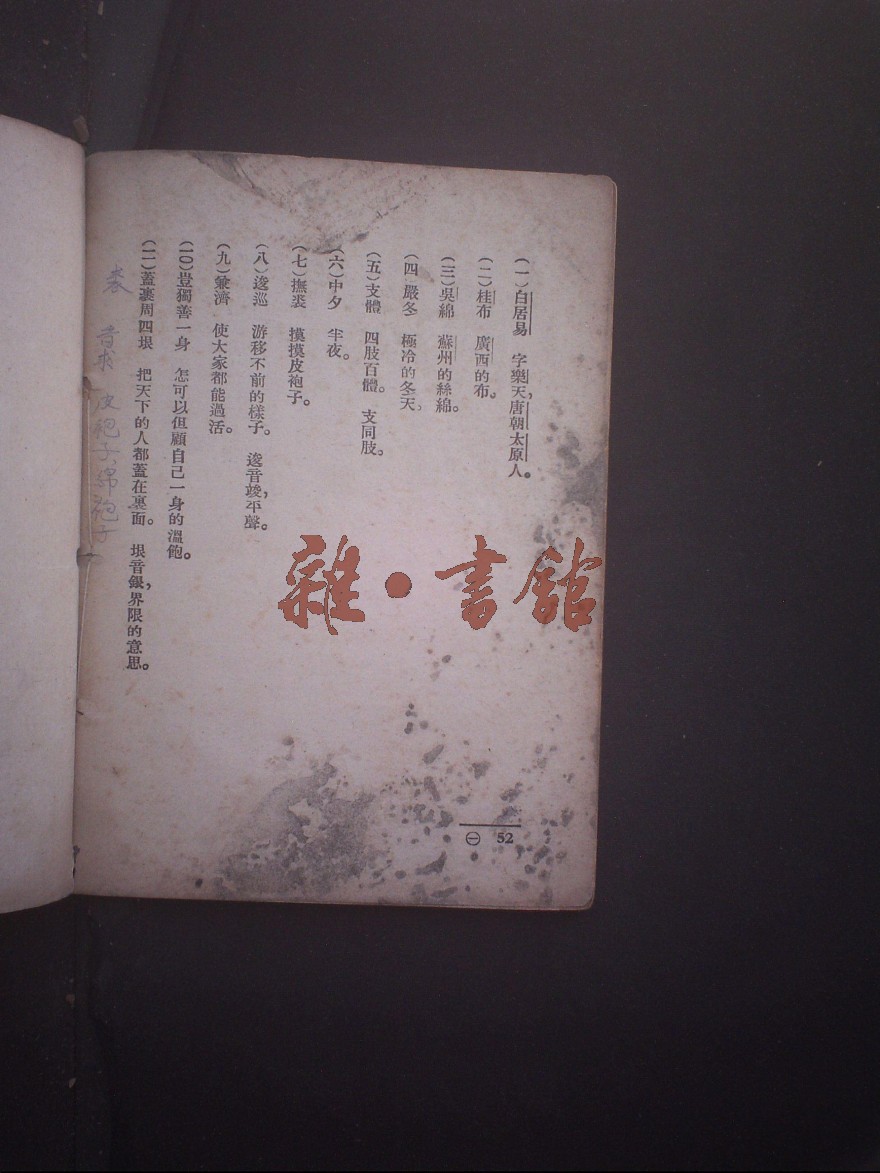 (一)白居易　字樂天,唐朝太原人。
(二)桂布　廣西的布。
(三)吳綿　蘇州的絲綿。
(四)嚴冬　極冷的冬天。
(五)支體　四肢百體。支同肢。
(六)中夕　半夜。
(七)撫裘　摸摸皮袍子。
(八)逡巡　游移不前的樣子。逡音竣,平聲。
(九)兼濟　使大家都能過活。
(一〇)豈獨善一身　怎可以但顧自己一身的溫飽。
(一一)蓋裹周四垠　把天下的人都蓋在裏面。垠音銀,界限的意思。
裘　音求　皮袍子,綿袍子
㊀ 52
雜·書館